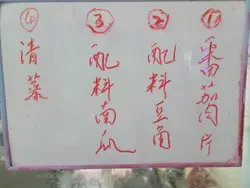 ①番茄肉片
②配料豆角
③配料南瓜
④清菜